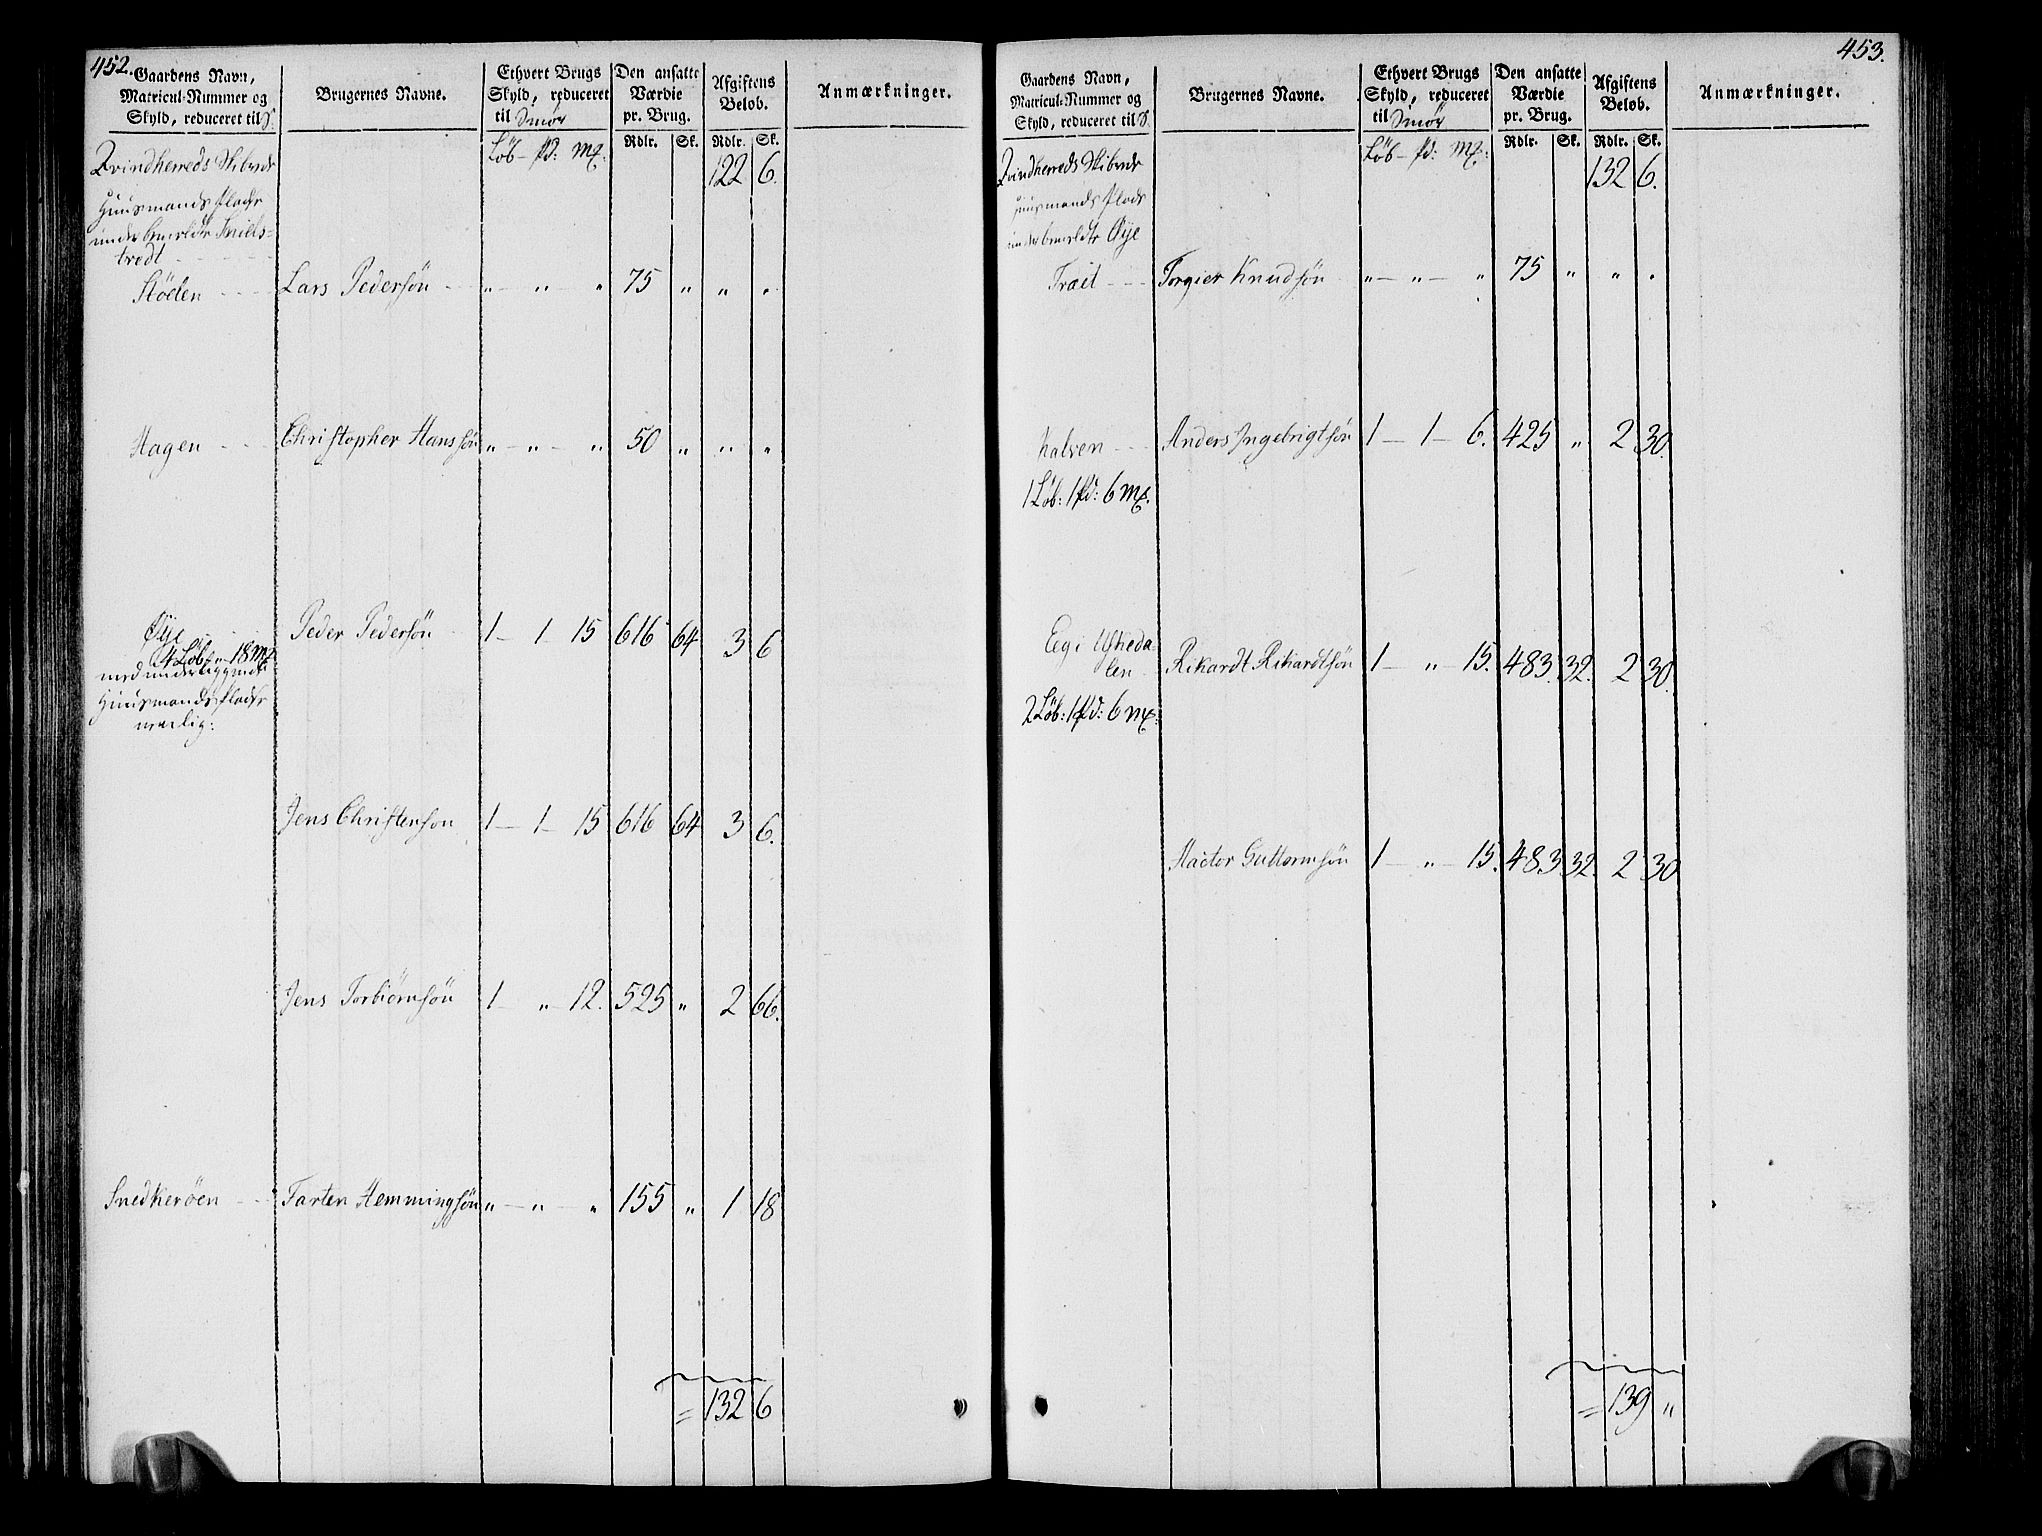 452.
Gaardens Navn, Matricul-Nummer og Skyld, reduceret til
Brugernes Navne.
Ethvert Brugs Skyld, reduceret til Smör
Den ansatte Værdie pr. Brug.
Afgiftens Beløb.
Anmærkninger.
Löb - Pd: Mk.
Rdlr. Sk. Rdlr. Sk.
Qvindherreds Skibrede 122 6.
Huusmands Pladse
under bemeldte
tvedt
Stöelen - - - Lars Pedersön - „ - „ - „ 75 „ „ „
Hagen - - - Christopher Hanssön „ - „ - „ 50 „ „ „
Øye Peder Pedersön 1 - 1 - 15 616 64 3 6
4 Löb „ 18 Mk
med underliggende
Huusmands Pladse
nemlig:
Jens Christenson 1 - 1 - 15 616 64 3 6.
Jens Torbiörnsön 1 - „ - 12. 525 „ 2 66.
Snedkeröen - - - Tarten Hemmingsön „ - „ - „ 155 „ 1 18
= 132 6
453.
Gaardens Navn, Matricul-Nummer og Skyld, reduceret til
Brugernes Navne.
Ethvert Brugs Skyld, reduceret til Smör
Den ansatte Værdie pr. Brug.
Afgiftens Beløb.
Anmærkninger.
Löb - Pd: Mk:
Rdlr. Sk. Rdlr. Sk.
Qvindherreds Skibrede 132 6.
Huusmands Plads
under bemeldte Øye
Træit - - - Torgier Knudsön „ - „ - „ 75 „ „ „
Halven - - - Anders Ingebrigtsön 1 - 1 - 6. 425 „ 2 30.
1 Löb: 1 Pd: 6 Mk.
Eeg i
len Rikardt Rikardtsön 1 - „ - 15. 483. 32. 2 30.
2 Löb: 1 Pd: 6 Mk.
Hactor Guttormsön 1 - „ - 15. 483 32. 2 30
= 139 „